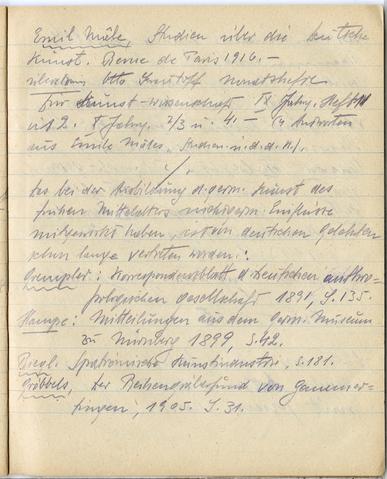 Emil Mâle, Studien über die deutsche
Kunst. Revue de Paris 1916. –
Otto Grautoff Monatshefte
für Kunst-wissenschaft IX Jahrg. Heft 11
u 12. X Jahrg. 2/3 u. 4. – 14 Antworten
aus Emile Mâles, Studien ü. d. d. K.
Das bei der Ausbildung d. germ. Kunst des
frühen Mittelalters nichtgerm. Einflüsse
mitgewirkt haben, ist in deutschen Gelehrten
schon lange vertreten worden:
Grempler: Korrespondenzblatt d. Deutschen anthro-
pologischen Gesellschaft 1891, S. 135.
Hampe: Mitteilungen aus dem Germ. Museum
zu Nürnberg 1899, S. 42.
Riegl. Spätrömische Kunstindustrie, S. 181.
Gröbbels, Der Reihengräberfund von Gammer-
tingen, 1905. S. 31.